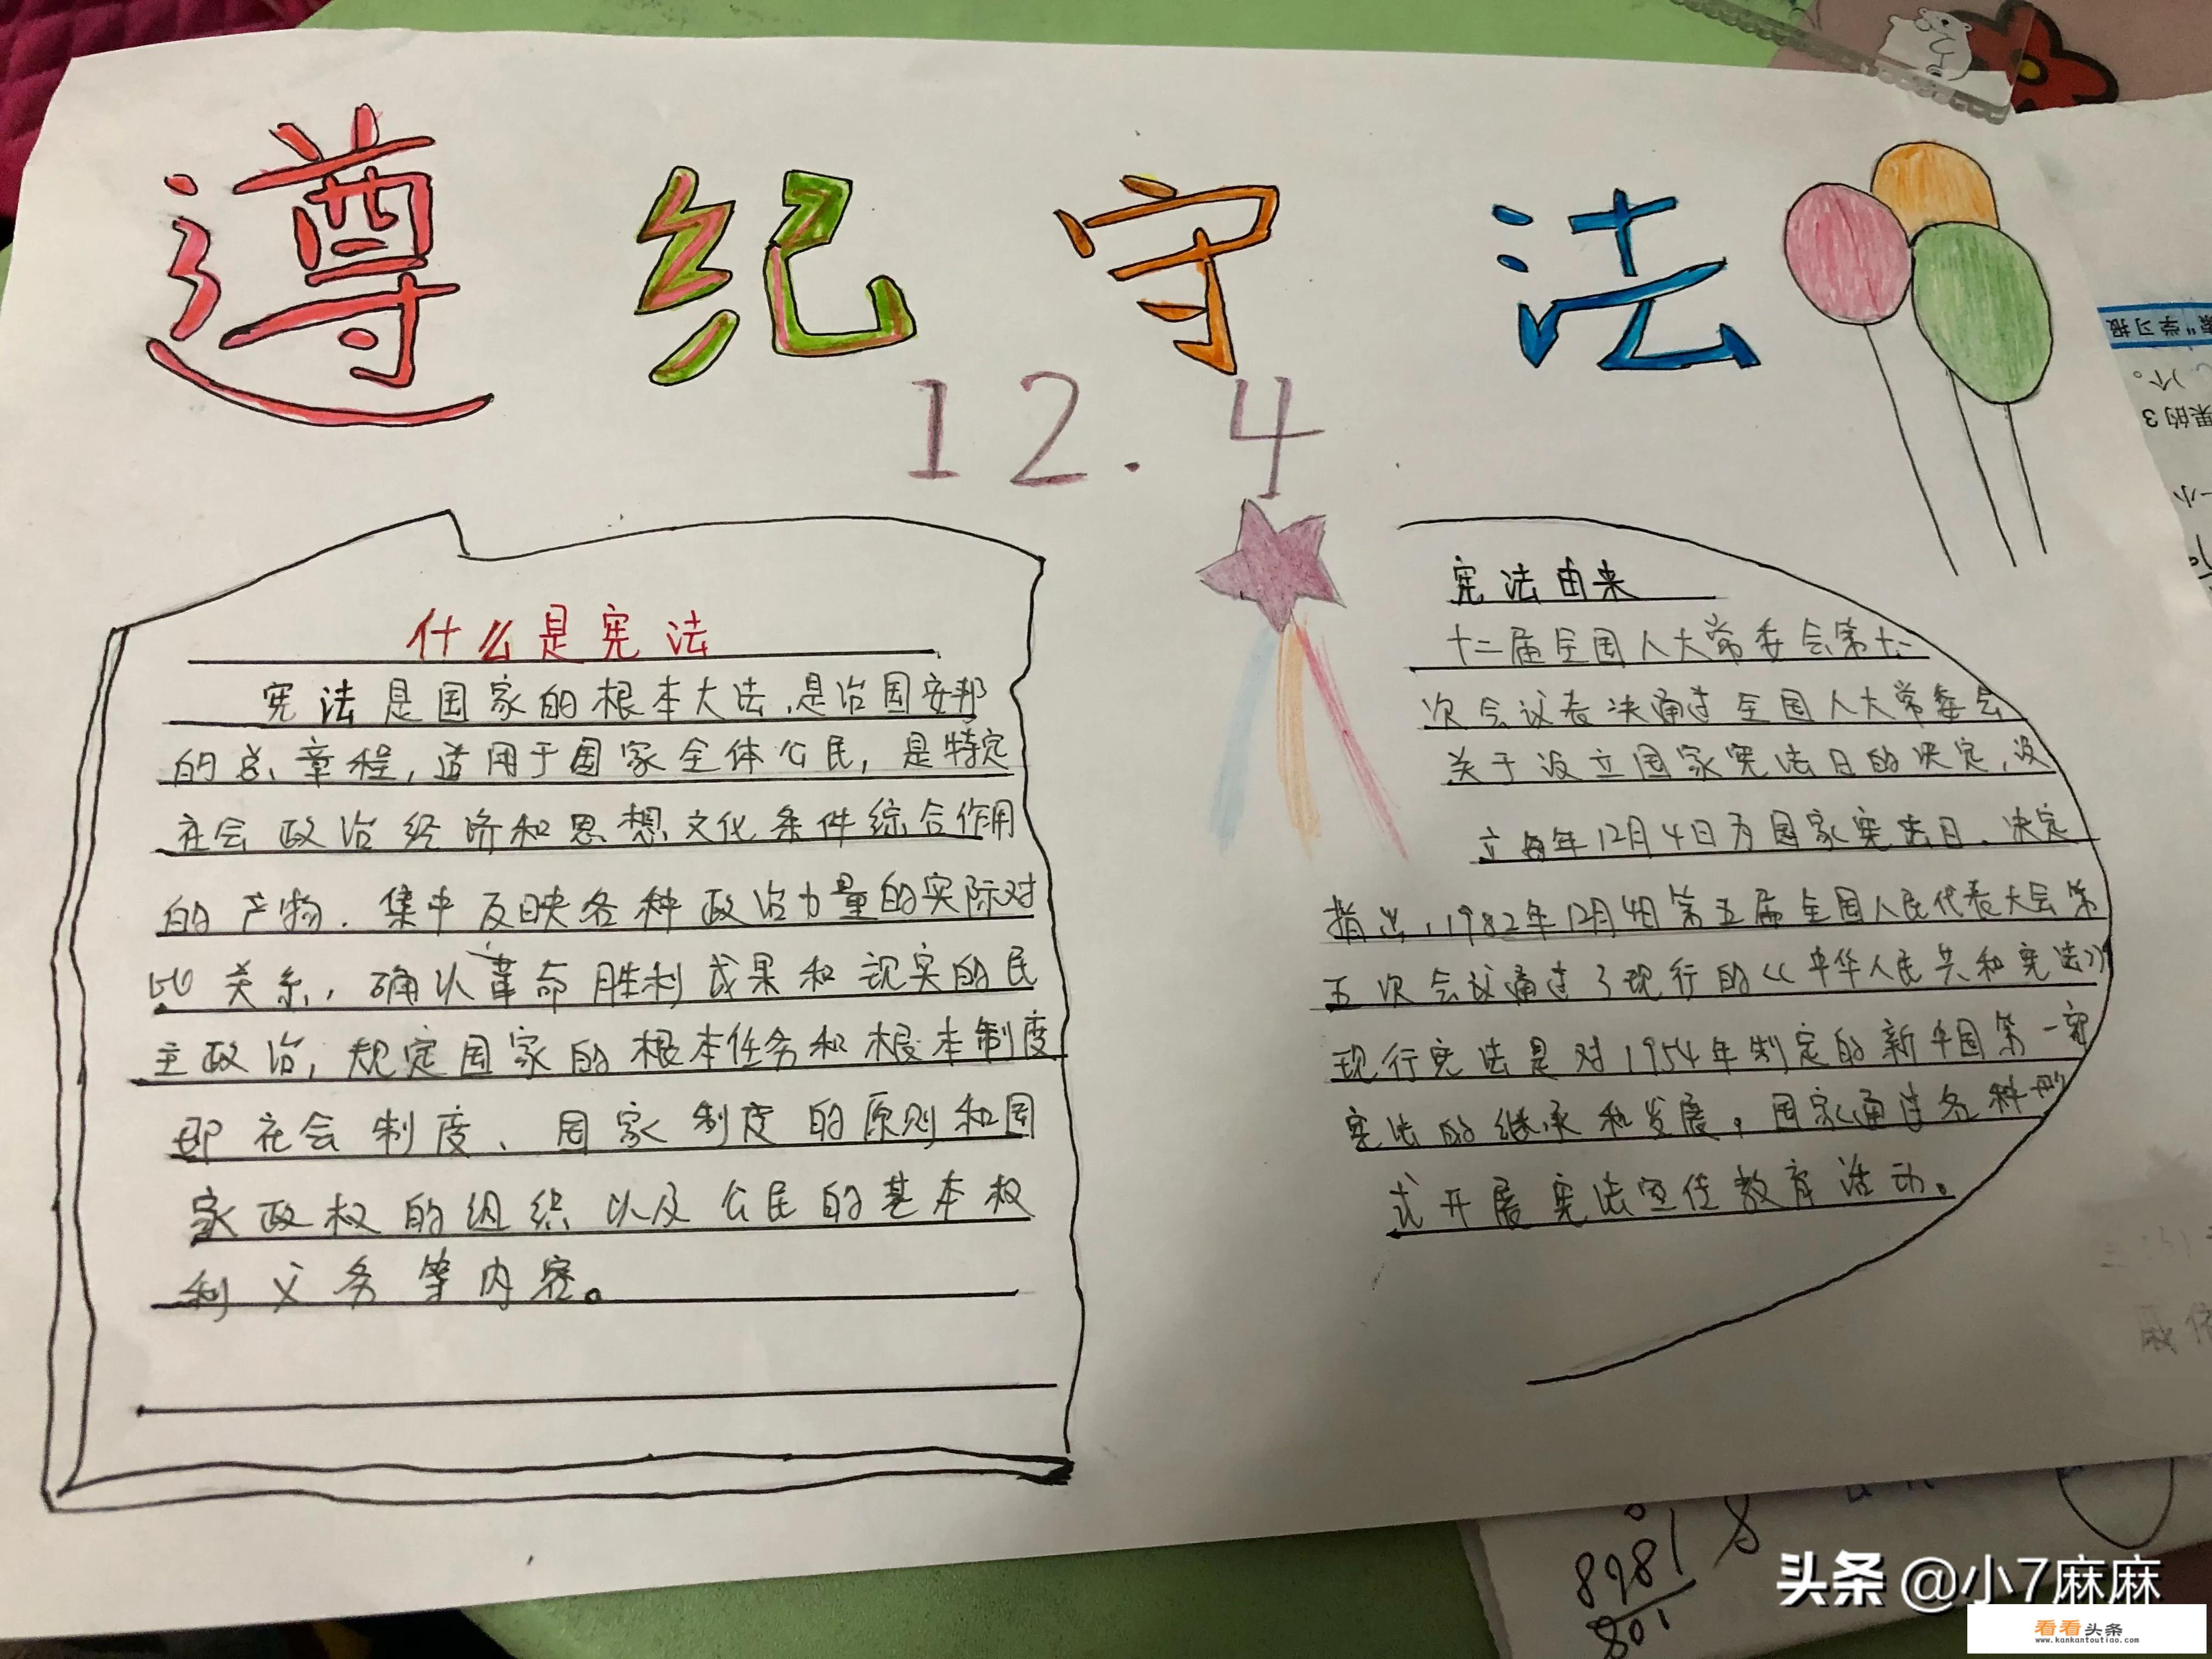 遵纪守法
12.4
什么是宪法
宪法是国家的根本大法,是治国安邦
的总章程,适用于国家全体公民,是特定
社会政治经济和思想文化条件综合作用
的产物.集中反映各种政治力量的实际对
比关系,确认革命胜利成果和现实的民
主政治,规定国家的根本任务和根本制度
即社会制度、国家制度的原则和国
家政权的组织以及公民的基本权
利义务等内容。
宪法由来
十二届全国人大常委会第十一
次会议表决通过全国人大常委会
关于设立国家宪法日的决定,设
立每年12月4日为国家宪法日、决定
指出,1982年12月4日第五届全国人民代表大会第
五次会议通过了现行的《中华人民共和宪法》
现行宪法是对1954年制定的新中国第一部
宪法的继承和发展。国家通过各种形
式开展宪法宣传教育活动。
学习报
)个。
果的3
一小
8981
801
8
头条 @小7麻麻
看看头条
www.kankantoutiao.com